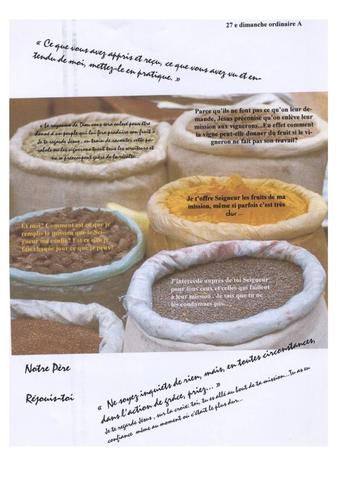 27 e dimanche ordinaire A
« Ce que vous avez appris et reçu, ce que vous avez vu et en-
tendu de moi, mettez-le en pratique. »
Parce qu'ils ne font pas ce qu'on leur de-
mande, Jésus préconise qu'on enlève leur
mission aux vignerons...En effet comment
la vigne peut-elle donner du fruit si le vi-
gneron ne fait pas son travail?
« Le royaume de Dieu vous sera enlevé pour être
donné à un peuple qui lui fera produire son fruit »
Je te regarde Jésus, en train de raconter cette pa-
Je t'offre Seigneur les fruits de ma
mission, même si parfois c'est très
dur ...
Et moi? Comment est-ce que je
remplis la mission que le Sei-
gneur me confie? Est-ce que je
fais chaque jour ce que je peux?
J'intercède auprès de toi Seigneur
pour tous ceux et celles qui faillent
à leur mission. Je sais que tu ne
les condamnes pas...
Notre Père
Réjouis-toi
« Ne soyez inquiets de rien, mais, en toutes circonstances,
dans l'action de grâce, priez... »
Je te regarde Jésus, sur la croix: toi, tu es allé au bout de ta mission...Tu as eu
confiance même au moment où c'était le plus dur...